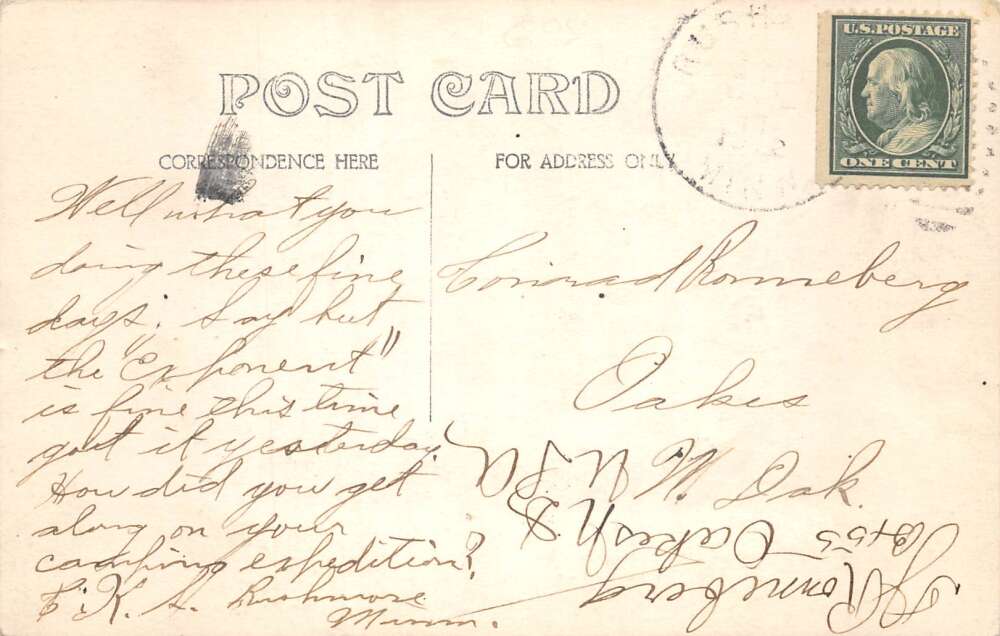 POST CARD
U.S. POSTAGE
ONE CENT
CORRESPONDENCE HERE
FOR ADDRESS ONLY
Well what you
doing these fine
days. Say but
the "Exponent"
is fine this time
got it yesterday.
How did you get
along on your
camping expedition?
E. K. S. Rushmore
Minn.
Conrad Ronneberg
Oakes
N. Dak.
Ronneberg
Oakes N D
U S A